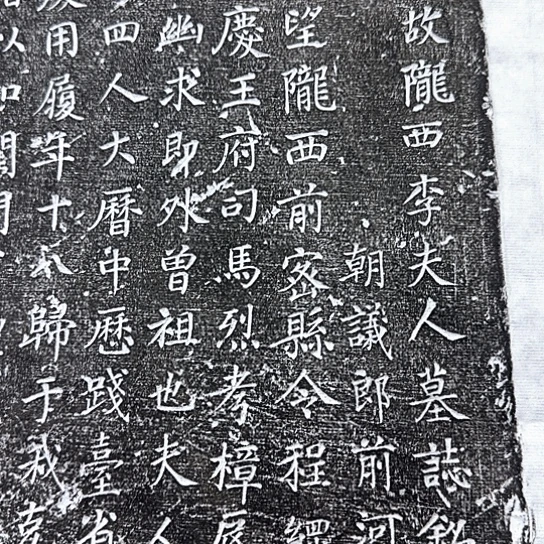 故隴西李夫人墓誌銘
朝議郎前河
望隴西前密縣令程
慶王府司馬烈考樟
幽求即外曾祖也夫人
四人大曆中歷踐臺省
用履年十八歸于我
以如閨門